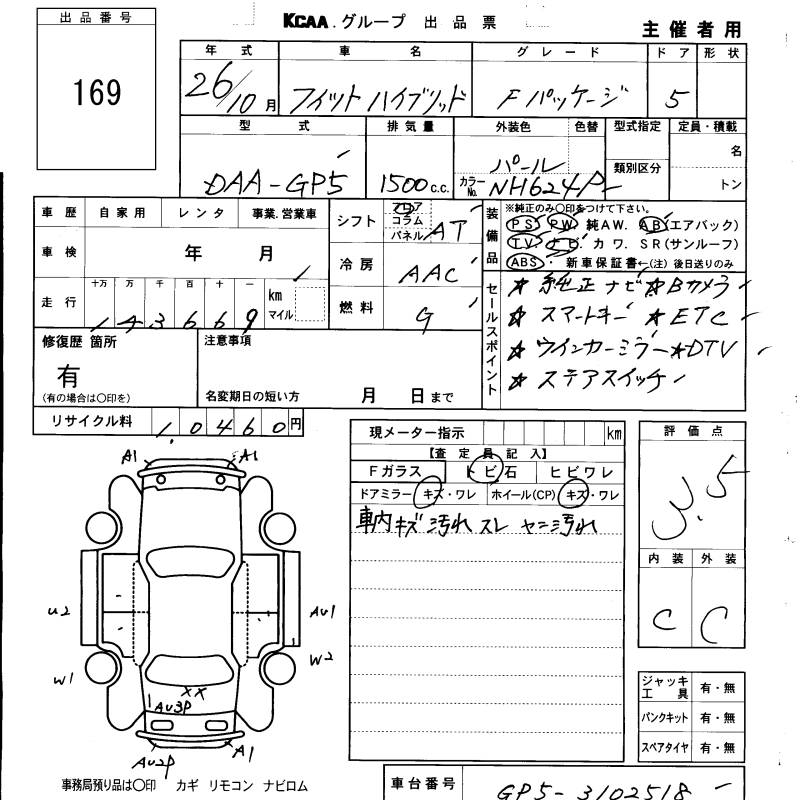 出品番号
KCAA.グループ 出品票
主催者用
169
年式 車名 グレード ドア 形状
26/10月 フィット ハイブリッド Fパッケージ 5
型式 排気量 外装色 色替 型式指定 定員・積載
DAA-GP5 1500c.c. パール 名
類別区分
カラーNo. NH624P トン
車歴 自家用 レンタ 事業.営業車
シフト フロア コラム パネル AT
装備品
※純正のみ○印をつけて下さい。
PS PW 純AW. AB(エアバック)
TV ナビ カワ. SR(サンルーフ)
ABS 新車保証書←(注) 後日送りのみ
車検 年 月
冷房 AAC
走行 十万 万 千 百 十 一 km マイル
143669
燃料 G
セールスポイント
☆ 純正ナビ ☆Bカメラ
☆ スマートキー ☆ETC
☆ ウインカーミラー ☆DTV
☆ ステアスイッチ
修復歴 箇所
有
(有の場合は○印を)
注意事項
名変期日の短い方 月 日まで
リサイクル料 1,0460円
現メーター指示 km
【査定員記入】
Fガラス トビ石 ヒビワレ
ドアミラー キズ・ワレ ホイール(CP) キズ・ワレ
車内キズ 汚れ スレ ヤニ汚れ
評価点
3.5
内装 外装
C C
A1 A1
U2 AU1
W1 W2
XX
AU3P
AU2P A1
ジャッキ工具 有・無
パンクキット 有・無
スペアタイヤ 有・無
事務局預り品は○印 カギ リモコン ナビロム
車台番号 GP5-3102518